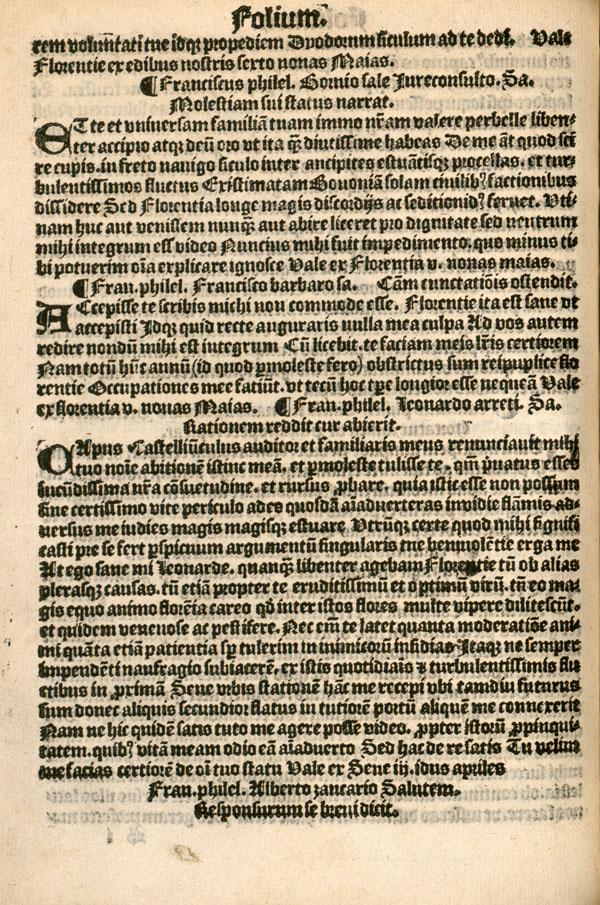 Folium.
rem voluntati tue idqꝫ propediem Duodorum siculum ad te dedi. Vale
Florentie ex edibus nostris sexto nonas Maias.
¶ Franciscus philel. Bornio sale Iureconsulto. Sa.
Molestiam sui status narrat.
ET te et vniuersam familiā tuam immo nr̄am valere perbelle liben-
ter accipio atqꝫ deū oro vt ita qꝫ diutissime habeas De me āt quod sci
re cupis. in freto nauigo siculo inter ancipites estuātisqꝫ procellas. et tur
bulentissimos fluctus Existimatam Bononiā solam ciuilibꝰ factionibus
dissidere Sed Florentia longe magis discordijs ac seditionibꝰ feruet. Vti-
nam huc aut venissem nunqꝫ aut abire liceret pro dignitate sed neutrum
mihi integrum esse video Nuncius mihi fuit impedimento. quo minus ti-
bi potuerim oīa explicare ignosce Vale ex Florentia v. nonas maias.
¶ Fran. philel. Francisco barbaro sa. Cām cunctatiōis ostendit.
ACcepisse te scribis michi nou commode esse. Florentie ita est sane vt
accepisti Idqꝫ quid recte auguraris nulla mea culpa Ad vos autem
redire nondū mihi est integrum Cū licebit. te faciam meis lr̄is certiorem
Nam totū hūc annū (id quod ꝑmoleste fero) obstrictus sum reipuplice flo
rentie Occupationes mee faciūt. vt tecū hoc tꝑe longior esse nequeā Vale
ex florentia v. nonas Maias. ¶ Fran. philel. Leonardo arreti. Sa.
Rationem reddit cur abierit.
CApus Castelliūculus auditor et familiaris meus renunciauit mihi
tuo noīe abitionē istinc meā. et ꝑmoleste tulisse te. qm̄ ṗuatus esses
iucūdissima nr̄a cōsuetudine. et rursus ꝓbare. quia istic esse non possum
sine certissimo vite periculo adeo quosdā aīaduerteras inuidie flāmis ad-
uersus me indies magis magisqꝫ estuare Vtrūqꝫ certe quod mihi signifi
casti pre se fert ꝑspicuum argumentū singularis tue beniuolētie erga me
At ego sane mi Leonarde. quanqꝫ libenter agebam Florentie tū ob alias
plerasqꝫ causas. tū etiā propter te eruditissimū et optimū virū. tū eo ma
gis equo animo florētia careo qd̄ inter istos flores multe vipere dilitescūt.
et quidem venenose ac pestifere. Nec em̄ te latet quanta moderatiōe ani-
mi quāta etiā patientia sꝑ tulerim in inimicorū insidias Itaqꝫ ne semper
impendēti naufragio subiacerē. ex istis quotidianis ⁊ turbulentissimis flu
ctibus in ꝓximā Sene vrbis stationē hāc me recepi vbi tamdiu futurus
sum donec aliquis secundior flatus in tutiorē portū aliquē me connexerit
Nam ne hic quidē satis tuto me agere posse video. ꝓpter istorū ꝓpinqui-
tatem. quibꝰ vitā meam odio eā aīaduerto Sed hac de re satis Tu velim
me facias certiorē de oī tuo statu Vale ex Sene iij. idus apriles
Fran. philel. Alberto zancario Salutem.
Responsurum se breui dicit.